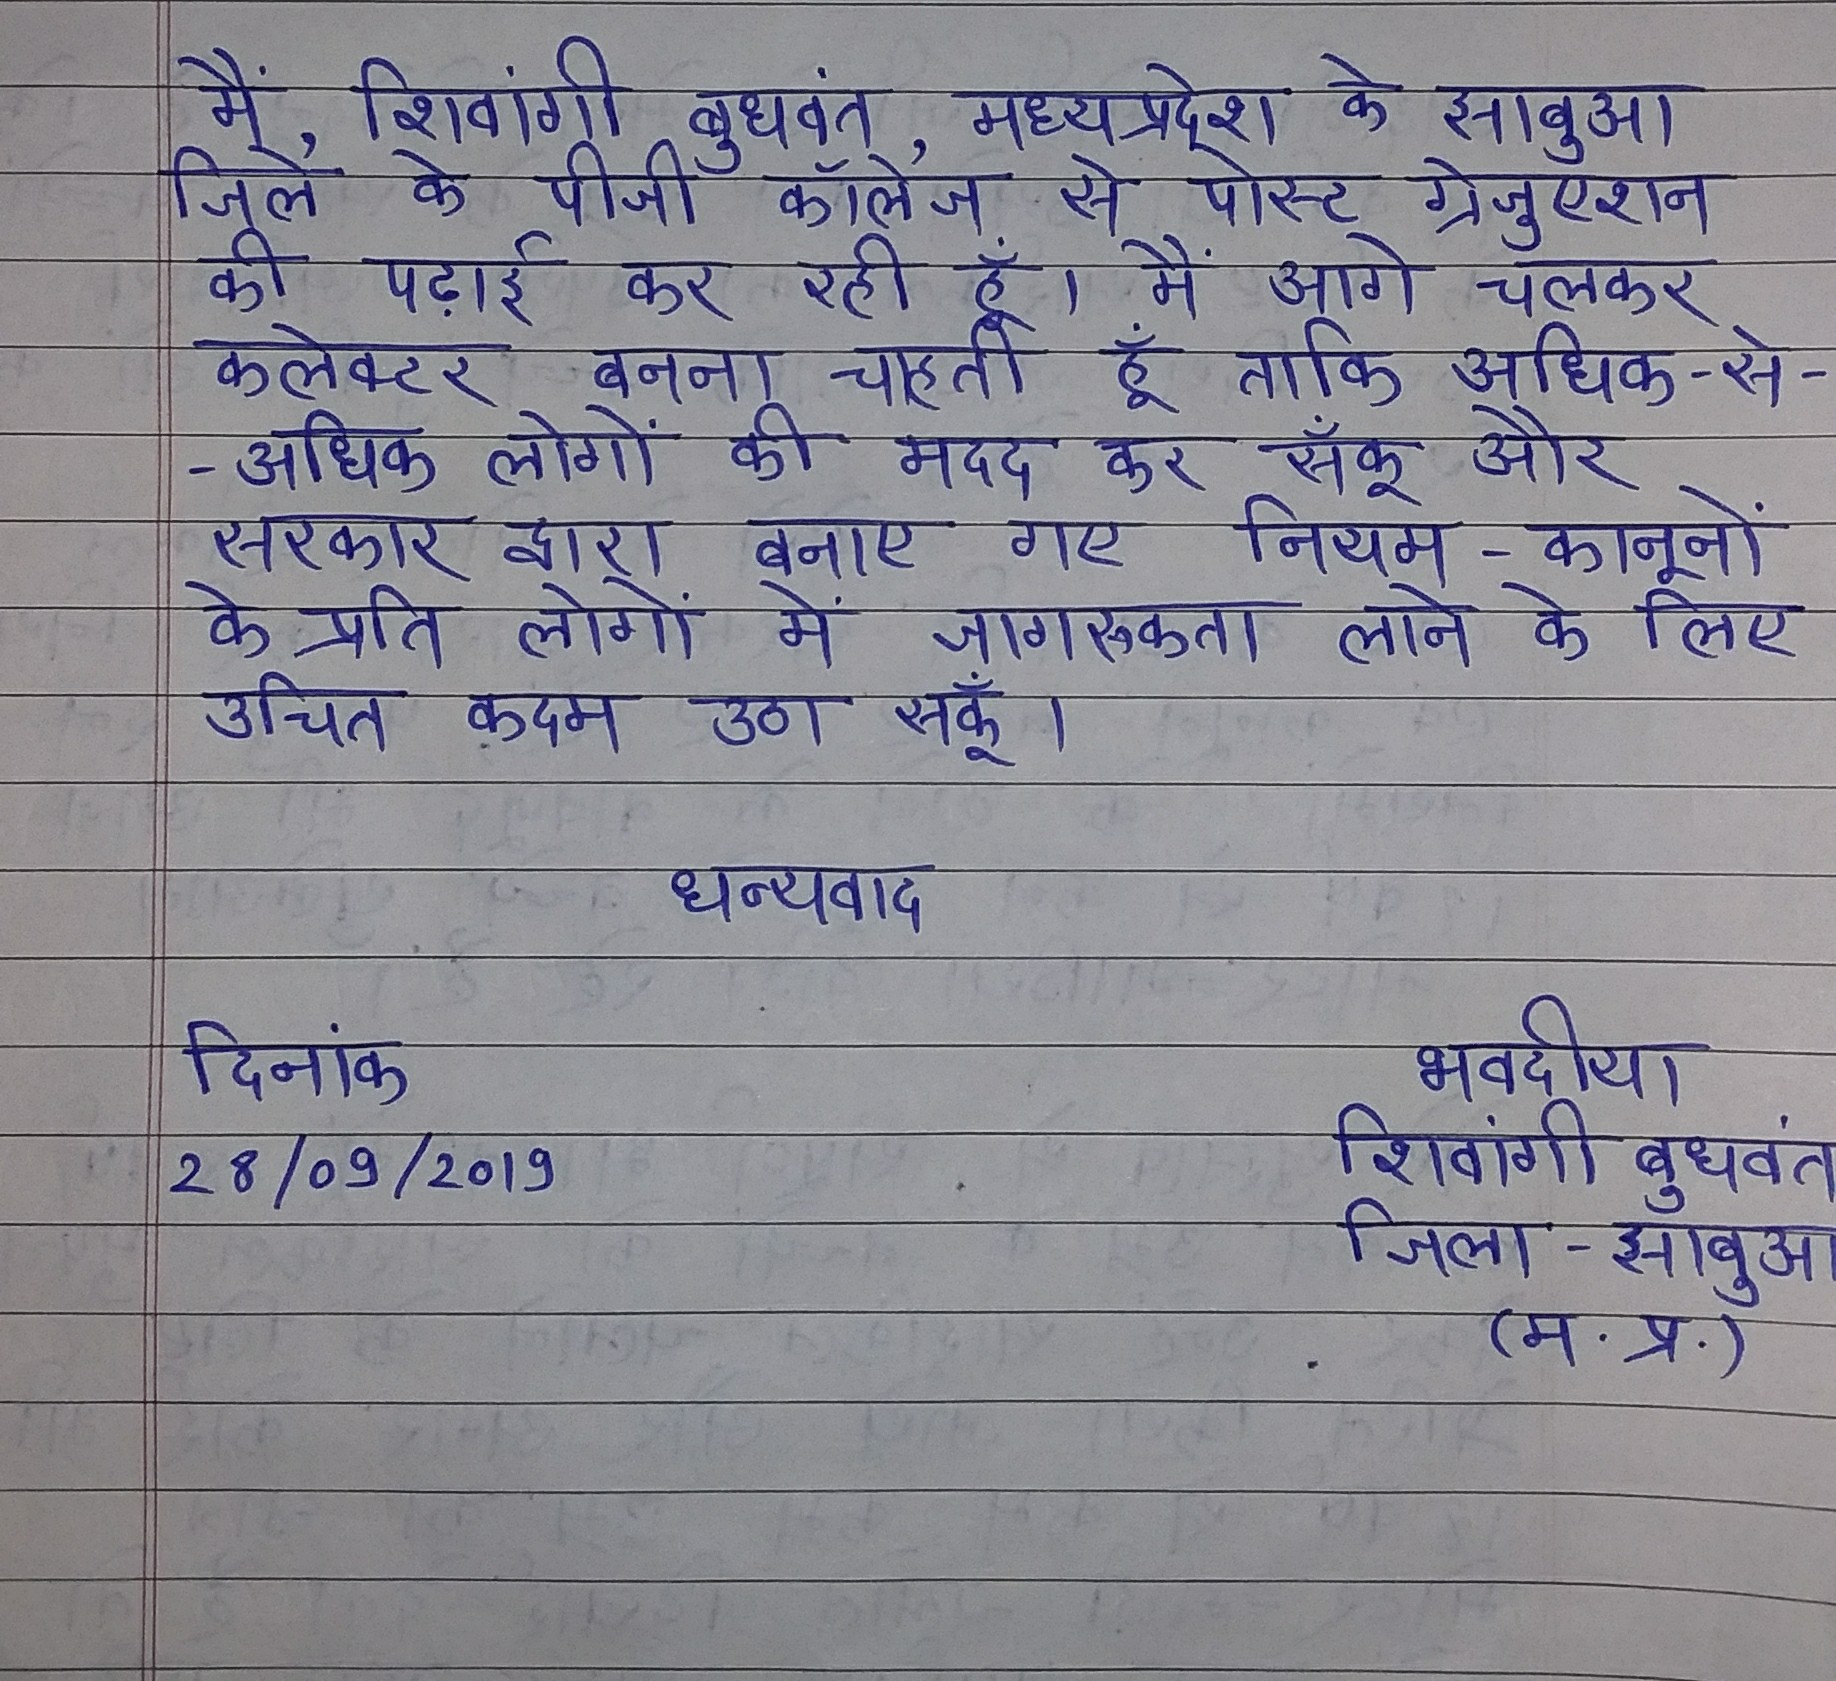 मैं, शिवांगी बुधवंत, मध्यप्रदेश के झाबुआ
जिले के पीजी कॉलेज से पोस्ट ग्रेजुएशन
की पढ़ाई कर रही हूँ। मैं आगे चलकर
कलेक्टर बनना चाहती हूँ ताकि अधिक-से-
-अधिक लोगों की मदद कर सँकू और
सरकार द्वारा बनाए गए नियम-कानूनों
के प्रति लोगों में जागरूकता लाने के लिए
उचित कदम उठा सकूँ।
धन्यवाद
दिनांक भवदीया
28/09/2019 शिवांगी बुधवंत
जिला - झाबुआ
(म. प्र.)